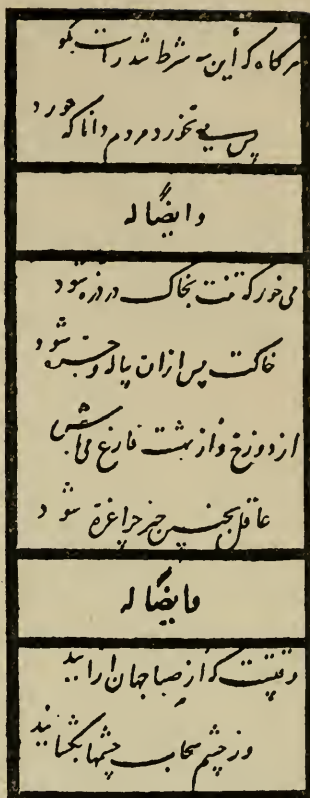 هرگاه که این سه شرط شد راست بگو
پس می نخورد مردم دانا که خورد
وایضاً له
می خور که تنت بخاک در ذره شود
خاکت پس ازان پیاله و خمره شود
از دوزخ و از بهشت فارغ می باش
عاقل بچنین چیز چرا غره شود
وایضاً له
وقتیست که از صبا جهان ارایند
وز چشم سحاب چشمها بکشایند